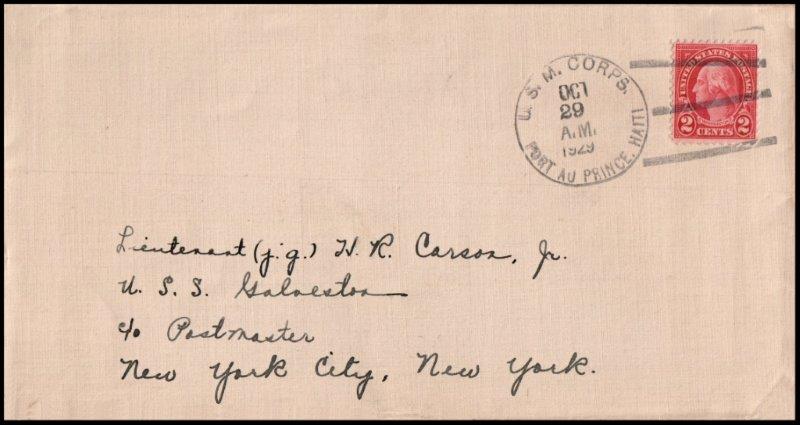 U. S. M. CORPS.
OCT
29
A.M.
1929
PORT AU PRINCE, HAITI
UNITED STATES POSTAGE
2 CENTS 2
Lieutenant (j.g.) H. R. Carson, Jr.
U. S. S. Galveston
c/o Postmaster
New York City, New York.